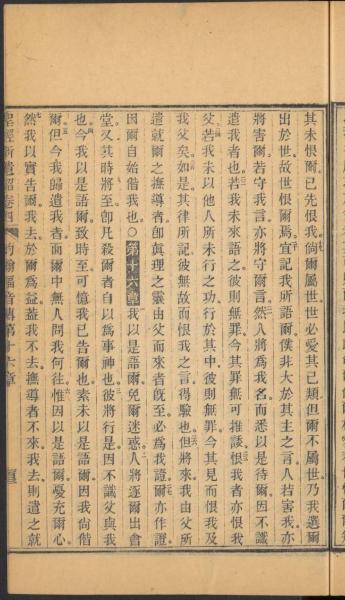 其未恨爾已先恨我倘爾屬世世必愛其己類但爾不屬世乃我選爾
出於世故世恨爾焉宜記我所語爾僕非大於其主之言人若害我亦
將害爾若守我言亦將守爾言然人將為我名而悉以是待爾因不識
遣我者也若我未來語之彼則無罪今其罪無可推諉恨我者亦恨我
父若我未以他人所未行之功行於其中彼則無罪今其見而恨我及
我父矣如是其律所記彼無故而恨我之言得驗也但將來我由父所
遣就爾之撫導者即眞理之靈由父而來者旣至必為我證爾亦作證
因爾自始偕我也○第十六章 我以是語爾免爾迷惑人將逐爾出會
堂又其時將至卽凡殺爾者自以為事神也彼將行是因不識父與我
也今我以是語爾致時至可憶我已告爾也素未以是語爾因我尚偕
爾但今我歸遣我者而爾中無人問我何往惟因以是語爾憂充爾心
然我以實告爾我去於爾為益蓋我不去撫導者不來我去則遣之就
聖經新遺詔卷四 約翰福音傳第十六章